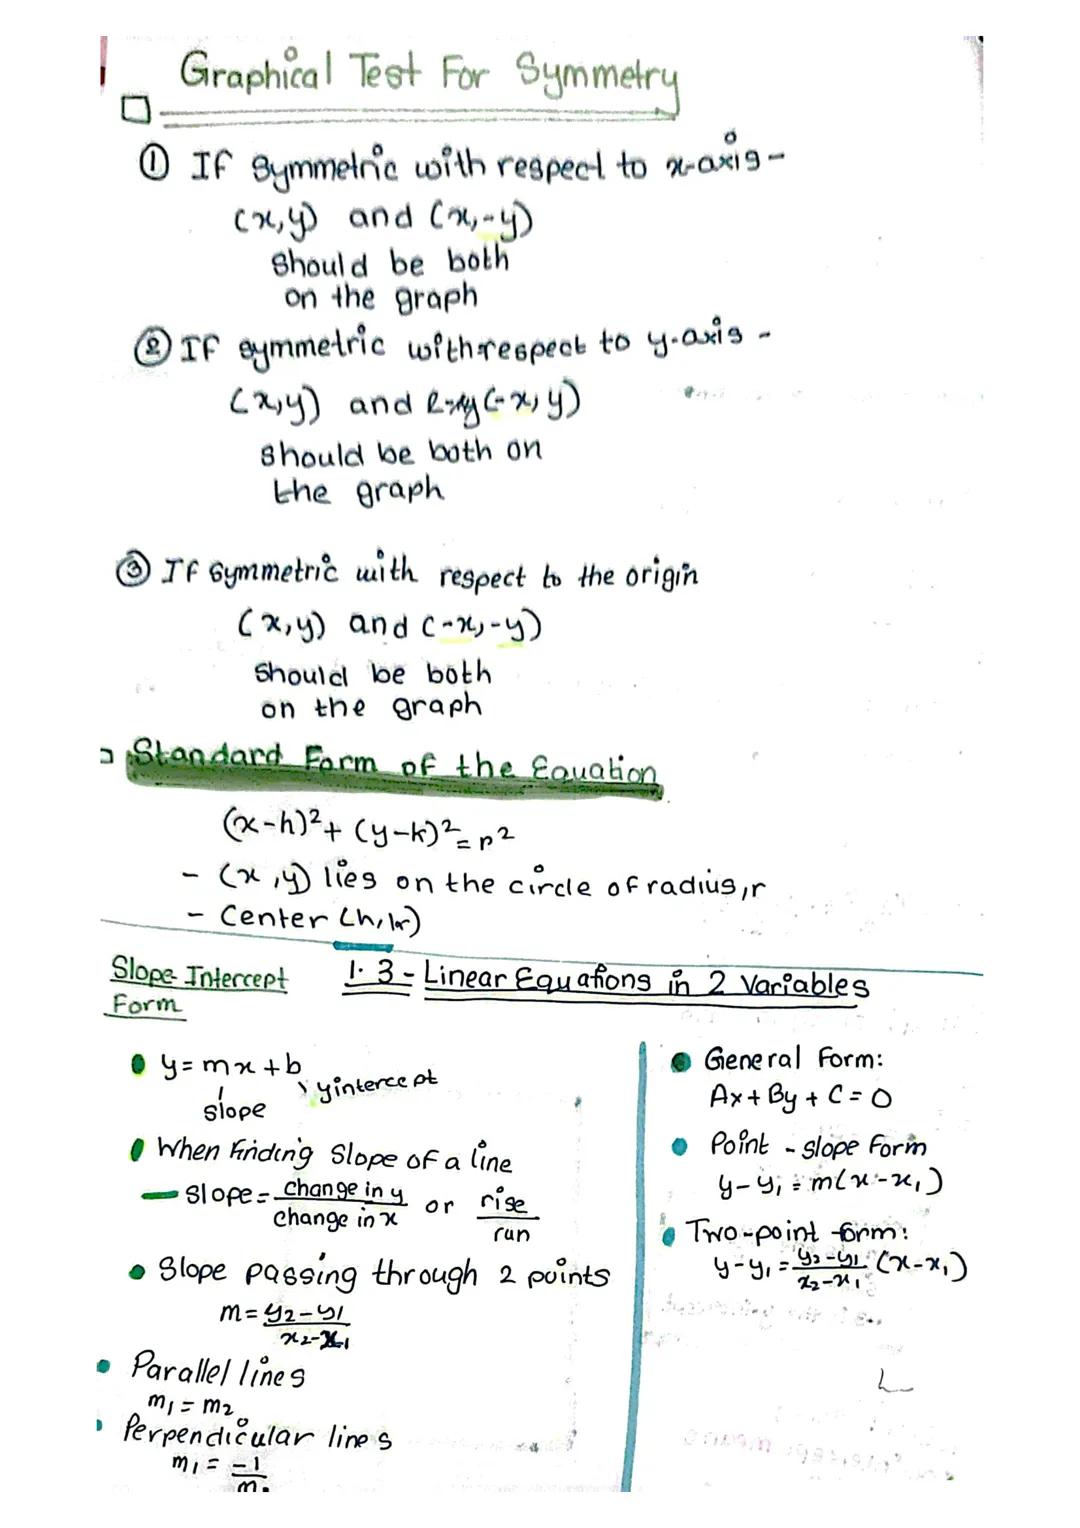 Graphical Test For Symmetry
① If symmetric with respect to x-axis -
(x,y) and (x,-y)
should be both
on the graph
② If symmetric with respect to y-axis -
(x,y) and (-x, y)
should be both on
the graph
③ If symmetric with respect to the origin
(x,y) and (-x,-y)
should be both
on the graph
Standard Form of the Equation
(x-h)²+ (y-k)²=r²
- (x,y) lies on the circle of radius, r
- Center (h,k)
1.3 - Linear Equations in 2 Variables
Slope-Intercept
Form
• y = mx + b
y intercept
slope
• When Finding Slope of a line
— slope = change in y / change in x or rise / run
• Slope passing through 2 points
m = y₂-y₁ / x₂-x₁
• Parallel lines
m₁ = m₂
• Perpendicular lines
m₁ = -1 / m
• General Form:
Ax + By + C = 0
• Point - slope Form
y-y₁ = m(x-x₁)
• Two-point form:
y-y₁ = y₂-y₁ / x₂-x₁ (x-x₁)